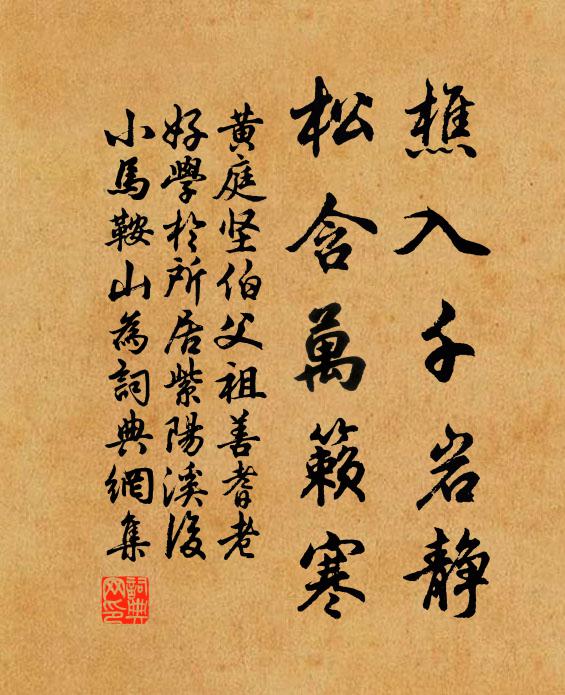 樵入千岩静
松含萬籟寒
黄庭坚伯父祖善耆老
好學於所居紫陽溪後
小馬鞍山為詞典網集
詞典
网印